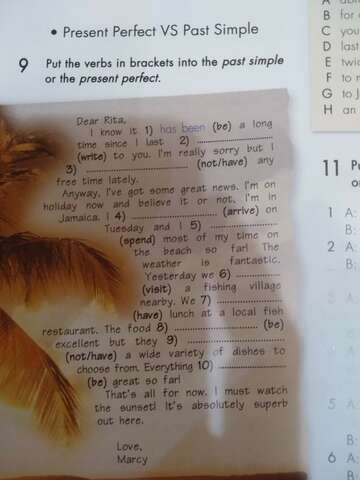 • Present Perfect VS Past Simple
9 Put the verbs in brackets into the past simple
or the present perfect.
Dear Rita,
I know it 1) has been (be) a long
time since I last 2) ..............................
(write) to you. I'm really sorry but I
3) .............................. (not/have) any
free time lately.
Anyway, I've got some great news. I'm on
holiday now and believe it or not, I'm in
Jamaica. I 4) .................... (arrive) on
Tuesday and I 5) ....................
(spend) most of my time on
the beach so far! The
weather is fantastic.
Yesterday we 6) ....................
(visit) a fishing village
nearby. We 7) ....................
(have) lunch at a local fish
restaurant. The food 8) .............................. (be)
excellent but they 9) ..............................
(not/have) a wide variety of dishes to
choose from. Everything 10) ....................
(be) great so far!
That's all for now. I must watch
the sunset! It's absolutely superb
out here.
Love,
Marcy
A
B for
C you
D last
E twic
F to
G to J
H an
11
1 A:
B:
2 A:
B:
3 A:
5 A:
B:
6 A:
B: